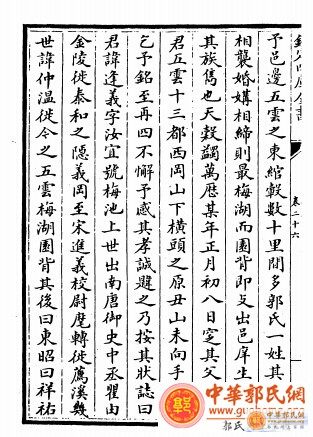 卷二十六
予邑邊五雲之東綰轂數十里間多郭氏一姓其
相襲婚媾相締則最梅湖而團背即支出邑庠生
其族雋也天穀蠲萬歷某年正月初八日窆其父
君五雲十三都西岡山下橫頭之原丑山未向手
乞予銘至再四不懈予感其孝誠韙之乃按其狀誌曰
君諱逢義字汝宜號梅池上世出南唐御史中丞瞿由
金陵徙泰和之隱義岡至宋進義校尉麾轉徙薦溪幾
世諱仲温徙今之五雲梅湖團背其後曰東昭曰祥祐
中華郭氏網
郭氏